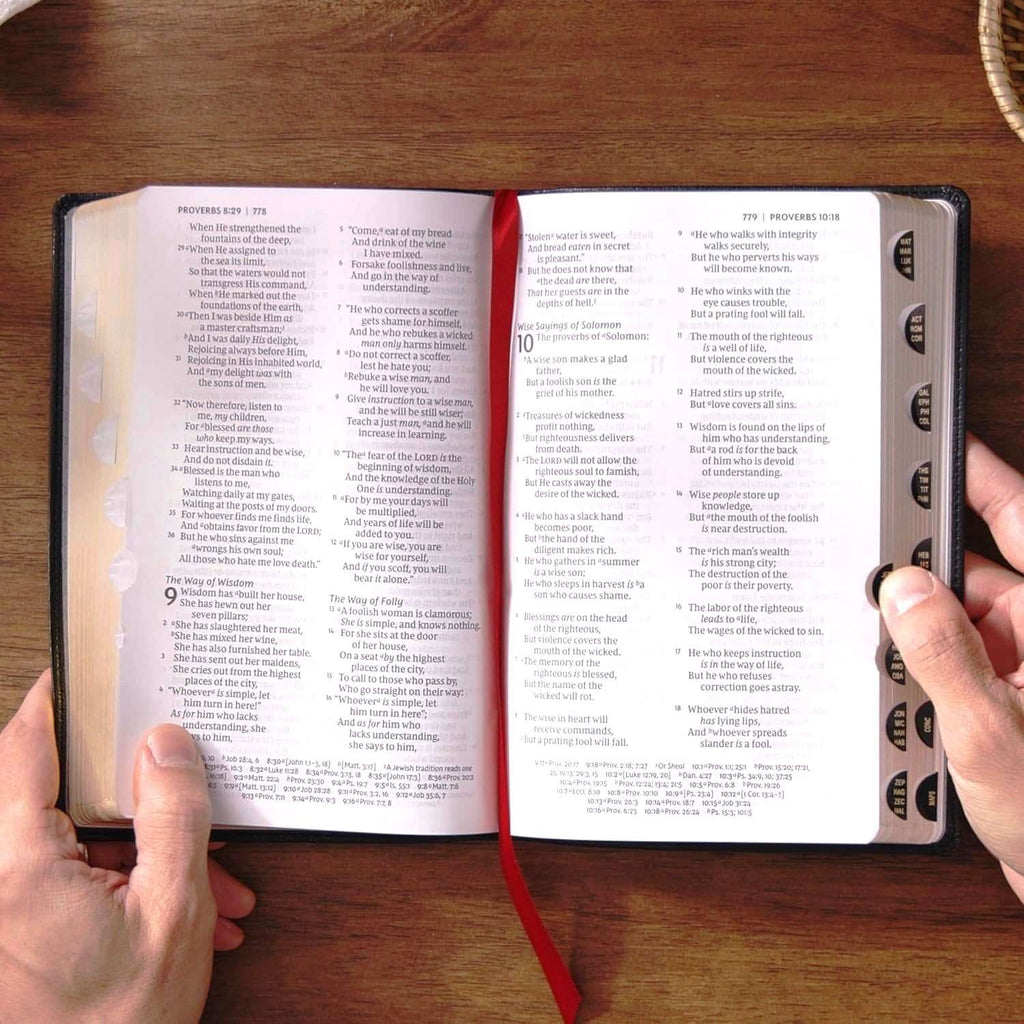 PROVERBS 8:29 | 778
When He strengthened the
fountains of the deep,
29 aWhen He assigned to
the sea its limit,
So that the waters would not
transgress His command,
When bHe marked out the
foundations of the earth,
30 aThen I was beside Him as
a master craftsman;1
bAnd I was daily His delight,
Rejoicing always before Him,
31 Rejoicing in His inhabited world,
And amy delight was with
the sons of men.
32 "Now therefore, listen to
me, my children,
For ablessed are those
who keep my ways.
33 Hear instruction and be wise,
And do not disdain it.
34 aBlessed is the man who
listens to me,
Watching daily at my gates,
Waiting at the posts of my doors.
35 For whoever finds me finds life,
And aobtains favor from the LORD;
36 But he who sins against me
awrongs his own soul;
All those who hate me love death."
The Way of Wisdom
9 Wisdom has abuilt her house,
She has hewn out her
seven pillars;
2 aShe has slaughtered her meat,
bShe has mixed her wine,
She has also furnished her table.
3 She has sent out her maidens,
She cries out from the highest
places of the city,
4 "Whoever is simple, let
him turn in here!"
As for him who lacks
understanding, she
to him,
5 "Come, eat of my bread
And drink of the wine
I have mixed.
6 Forsake foolishness and live,
And go in the way of
understanding.
7 "He who corrects a scoffer
gets shame for himself,
And he who rebukes a wicked
man only harms himself.
8 aDo not correct a scoffer,
lest he hate you;
bRebuke a wise man, and
he will love you.
9 Give instruction to a wise man,
and he will be still wiser;
Teach a just man, aand he will
increase in learning.
10 "The fear of the LORD is the
beginning of wisdom,
And the knowledge of the Holy
One is understanding.
11 aFor by me your days will
be multiplied,
And years of life will be
added to you.
12 aIf you are wise, you are
wise for yourself,
And if you scoff, you will
bear it alone."
The Way of Folly
13 aA foolish woman is clamorous;
She is simple, and knows nothing.
14 For she sits at the door
of her house,
On a seat aby the highest
places of the city,
15 To call to those who pass by,
Who go straight on their way:
16 "Whoever is simple, let
him turn in here";
And as for him who
lacks understanding,
she says to him,
779 | PROVERBS 10:18
"Stolen water is sweet,
And bread eaten in secret
is pleasant."
But he does not know that
athe dead are there,
That her guests are in the
depths of hell.1
Wise Sayings of Solomon
10 The proverbs of aSolomon:
A wise son makes a glad
father,
But a foolish son is the
grief of his mother.
2 aTreasures of wickedness
profit nothing,
bBut righteousness delivers
from death.
3 aThe LORD will not allow the
righteous soul to famish,
But He casts away the
desire of the wicked.
4 aHe who has a slack hand
becomes poor,
But bthe hand of the
diligent makes rich.
5 He who gathers in asummer
is a wise son;
He who sleeps in harvest is ba
son who causes shame.
Blessings are on the head
of the righteous,
But violence covers the
mouth of the wicked.
The memory of the
righteous is blessed,
But the name of the
wicked will rot.
The wise in heart will
receive commands,
But a prating fool will fall.
9 aHe who walks with integrity
walks securely,
But he who perverts his ways
will become known.
10 He who winks with the
eye causes trouble,
But a prating fool will fall.
11 The mouth of the righteous
is a well of life,
But violence covers the
mouth of the wicked.
12 Hatred stirs up strife,
But alove covers all sins.
13 Wisdom is found on the lips of
him who has understanding,
But aa rod is for the back
of him who is devoid
of understanding.
14 Wise people store up
knowledge,
But athe mouth of the foolish
is near destruction.
15 The arich man's wealth
is his strong city;
The destruction of the
poor is their poverty.
16 The labor of the righteous
leads to alife,
The wages of the wicked to sin.
17 He who keeps instruction
is in the way of life,
But he who refuses
correction goes astray.
18 Whoever ahides hatred
has lying lips,
And bwhoever spreads
slander is a fool.
MAT
MAR
LUK
ACT
ROM
COR
GAL
EPH
PHI
COL
THS
TIM
TIT
PHN
HEB
AMO
OBA
JON
MIC
NAH
HAB
CONC
ZEP
HAG
ZEC
MAL
MAPS